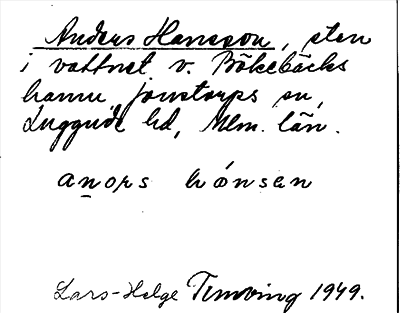 Anders Hansson, sten
i vattnet v. Bökebäcks
hamn, Jonstorps sn,
Luggude hd, Mlm. län.
anops hónsen
Lars-Helge Temving 1949.